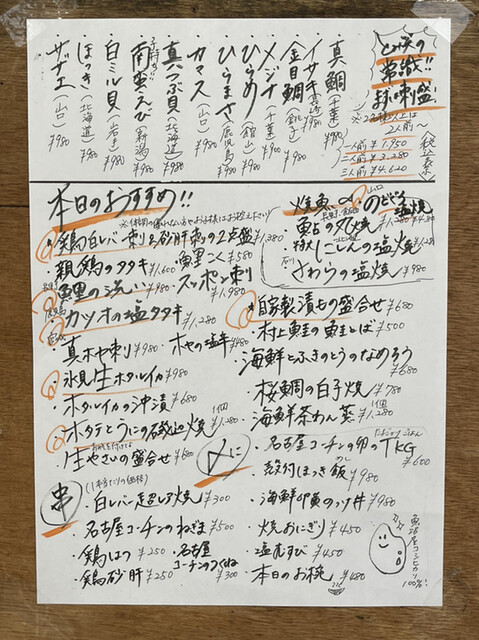 常識!!
お刺盛
※2種以上は
2人前〜
(税込系)
一人前 ¥1,950
二人前 ¥3,280
三人前 ¥4,620
・真鯛(千葉)¥980
・イサキ(長崎)¥980
・金目鯛(銚子)¥980
・メジナ(千葉)¥900
・ひらめ(館山)¥980
・ひらまさ(鹿児島)¥980
・カマス(山口)¥980
・真つぶ貝(北海道)¥980
・南蛮えび(新潟)¥980
・白ミル貝(岩手)¥980
・ほっき(北海道)¥980
・サザエ(山口)¥980
本日のおすすめ!!
・鶏白レバー刺し&砂肝刺しの2点盛 ¥1,380
・親鶏のタタキ ¥1,600
・魚里こく ¥580
・魚里の洗い ¥980
・スッポン刺し ¥1,980
・カツオの塩タタキ ¥1,280
・真ホヤ刺し ¥980
・ホヤの塩辛 ¥480
・氷見生ホタルイカ ¥980
・ホタルイカの沖漬 ¥680
・ホタテとうにの磯辺焼 1個 ¥1,280
・生やさいの盛合せ ¥680
焼魚
山口 のどぐろ塩焼
特大 にしんの塩焼 ¥1,280
さわらの塩焼 ¥980
・自家製漬もの盛合せ ¥680
・村上鮭の鮭とば ¥500
・海鮮とふきのとうのなめろう ¥680
・桜鯛の白子焼 ¥780
・海鮮茶わん蒸 1個 ¥1,280
串
(1本当たりの価格)
・白レバー超レア焼 ¥300
・名古屋コーチンのねぎま ¥500
・鶏はつ ¥250
・名古屋コーチンのつくね ¥300
・鶏砂肝 ¥250
〆に
・名古屋コーチンの卵のTKG ¥600
・殻付ほっき飯 ¥980
・海鮮卵黄のっけ丼 ¥980
・焼おにぎり ¥450
・塩むすび ¥450
・本日のお椀 ¥480
魚沼産コシヒカリ
100%!